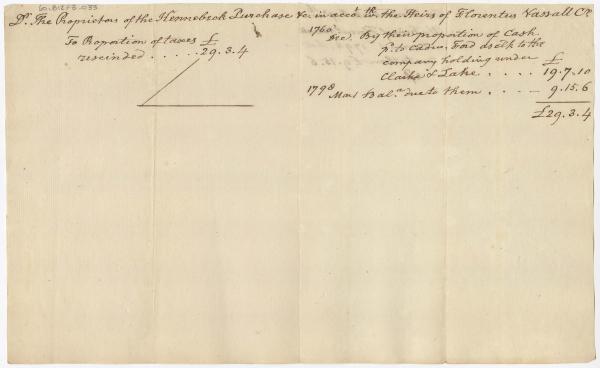 60.B12F3.033
Dr. The Proprietors of the Kennebeck Purchase &c in acct. with the Heirs of Florentus Vassall Cr.
To Proportion of taxes £
rescinded . . . . . 29. 3. 4
1760
Dec. By their proportion of Cash
pd. to Cadwr. Ford
to the
company holding under £
Clarke & Lake . . . . 19. 7. 10
1798
Mar 1 Bala. due to them . . . . 9. 15. 6
£29. 3. 4